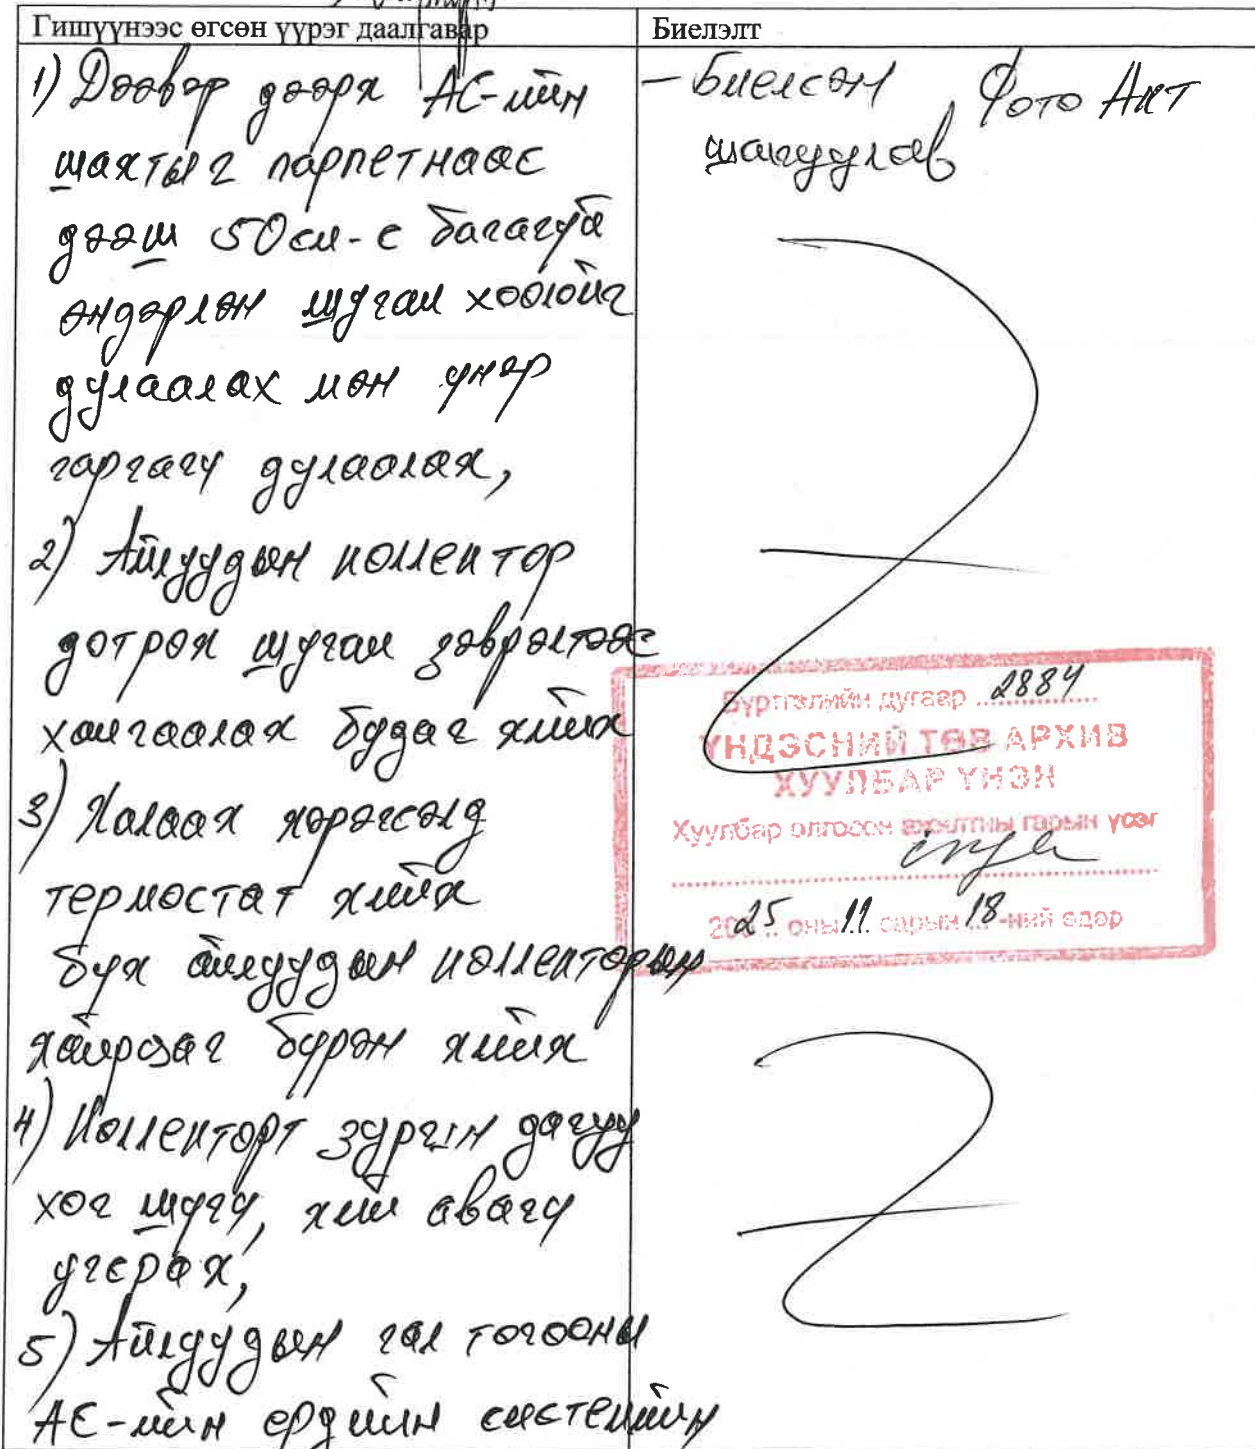 Гишүүнээс өгсөн үүрэг даалгавар
Биелэлт
1) Дээвэр дээрх АС-ийн
шахтыг парпетнаас
дээш 50см-с багагүй
өндөрлөн шугам хоолойг
дулаалах мөн үнэр
гаргагч дулаалах,
2) Айлуудын коллектор
дотрох шугам зэврэлтээс
хамгаалах будаг хийх
3) Халаах хэрэгсэлд
термостат хийх
бүх айлуудын коллекторын
хайрцаг бүрэн хийх
4) Коллекторт зургын дагуу
хог шүүгч, хий авагч
угсрах,
5) Айлуудын гал тогооны
АС-ийн ердийн системийн
- Биелсэн Фото Акт
шалгуулав
Бүртгэлийн дугаар 2884
ҮНДЭСНИЙ ТӨВ АРХИВ
ХУУЛБАР ҮНЭН
Хуулбар олгосон ажилтны гарын үсэг
2025 оны 11 сарын 18-ний өдөр